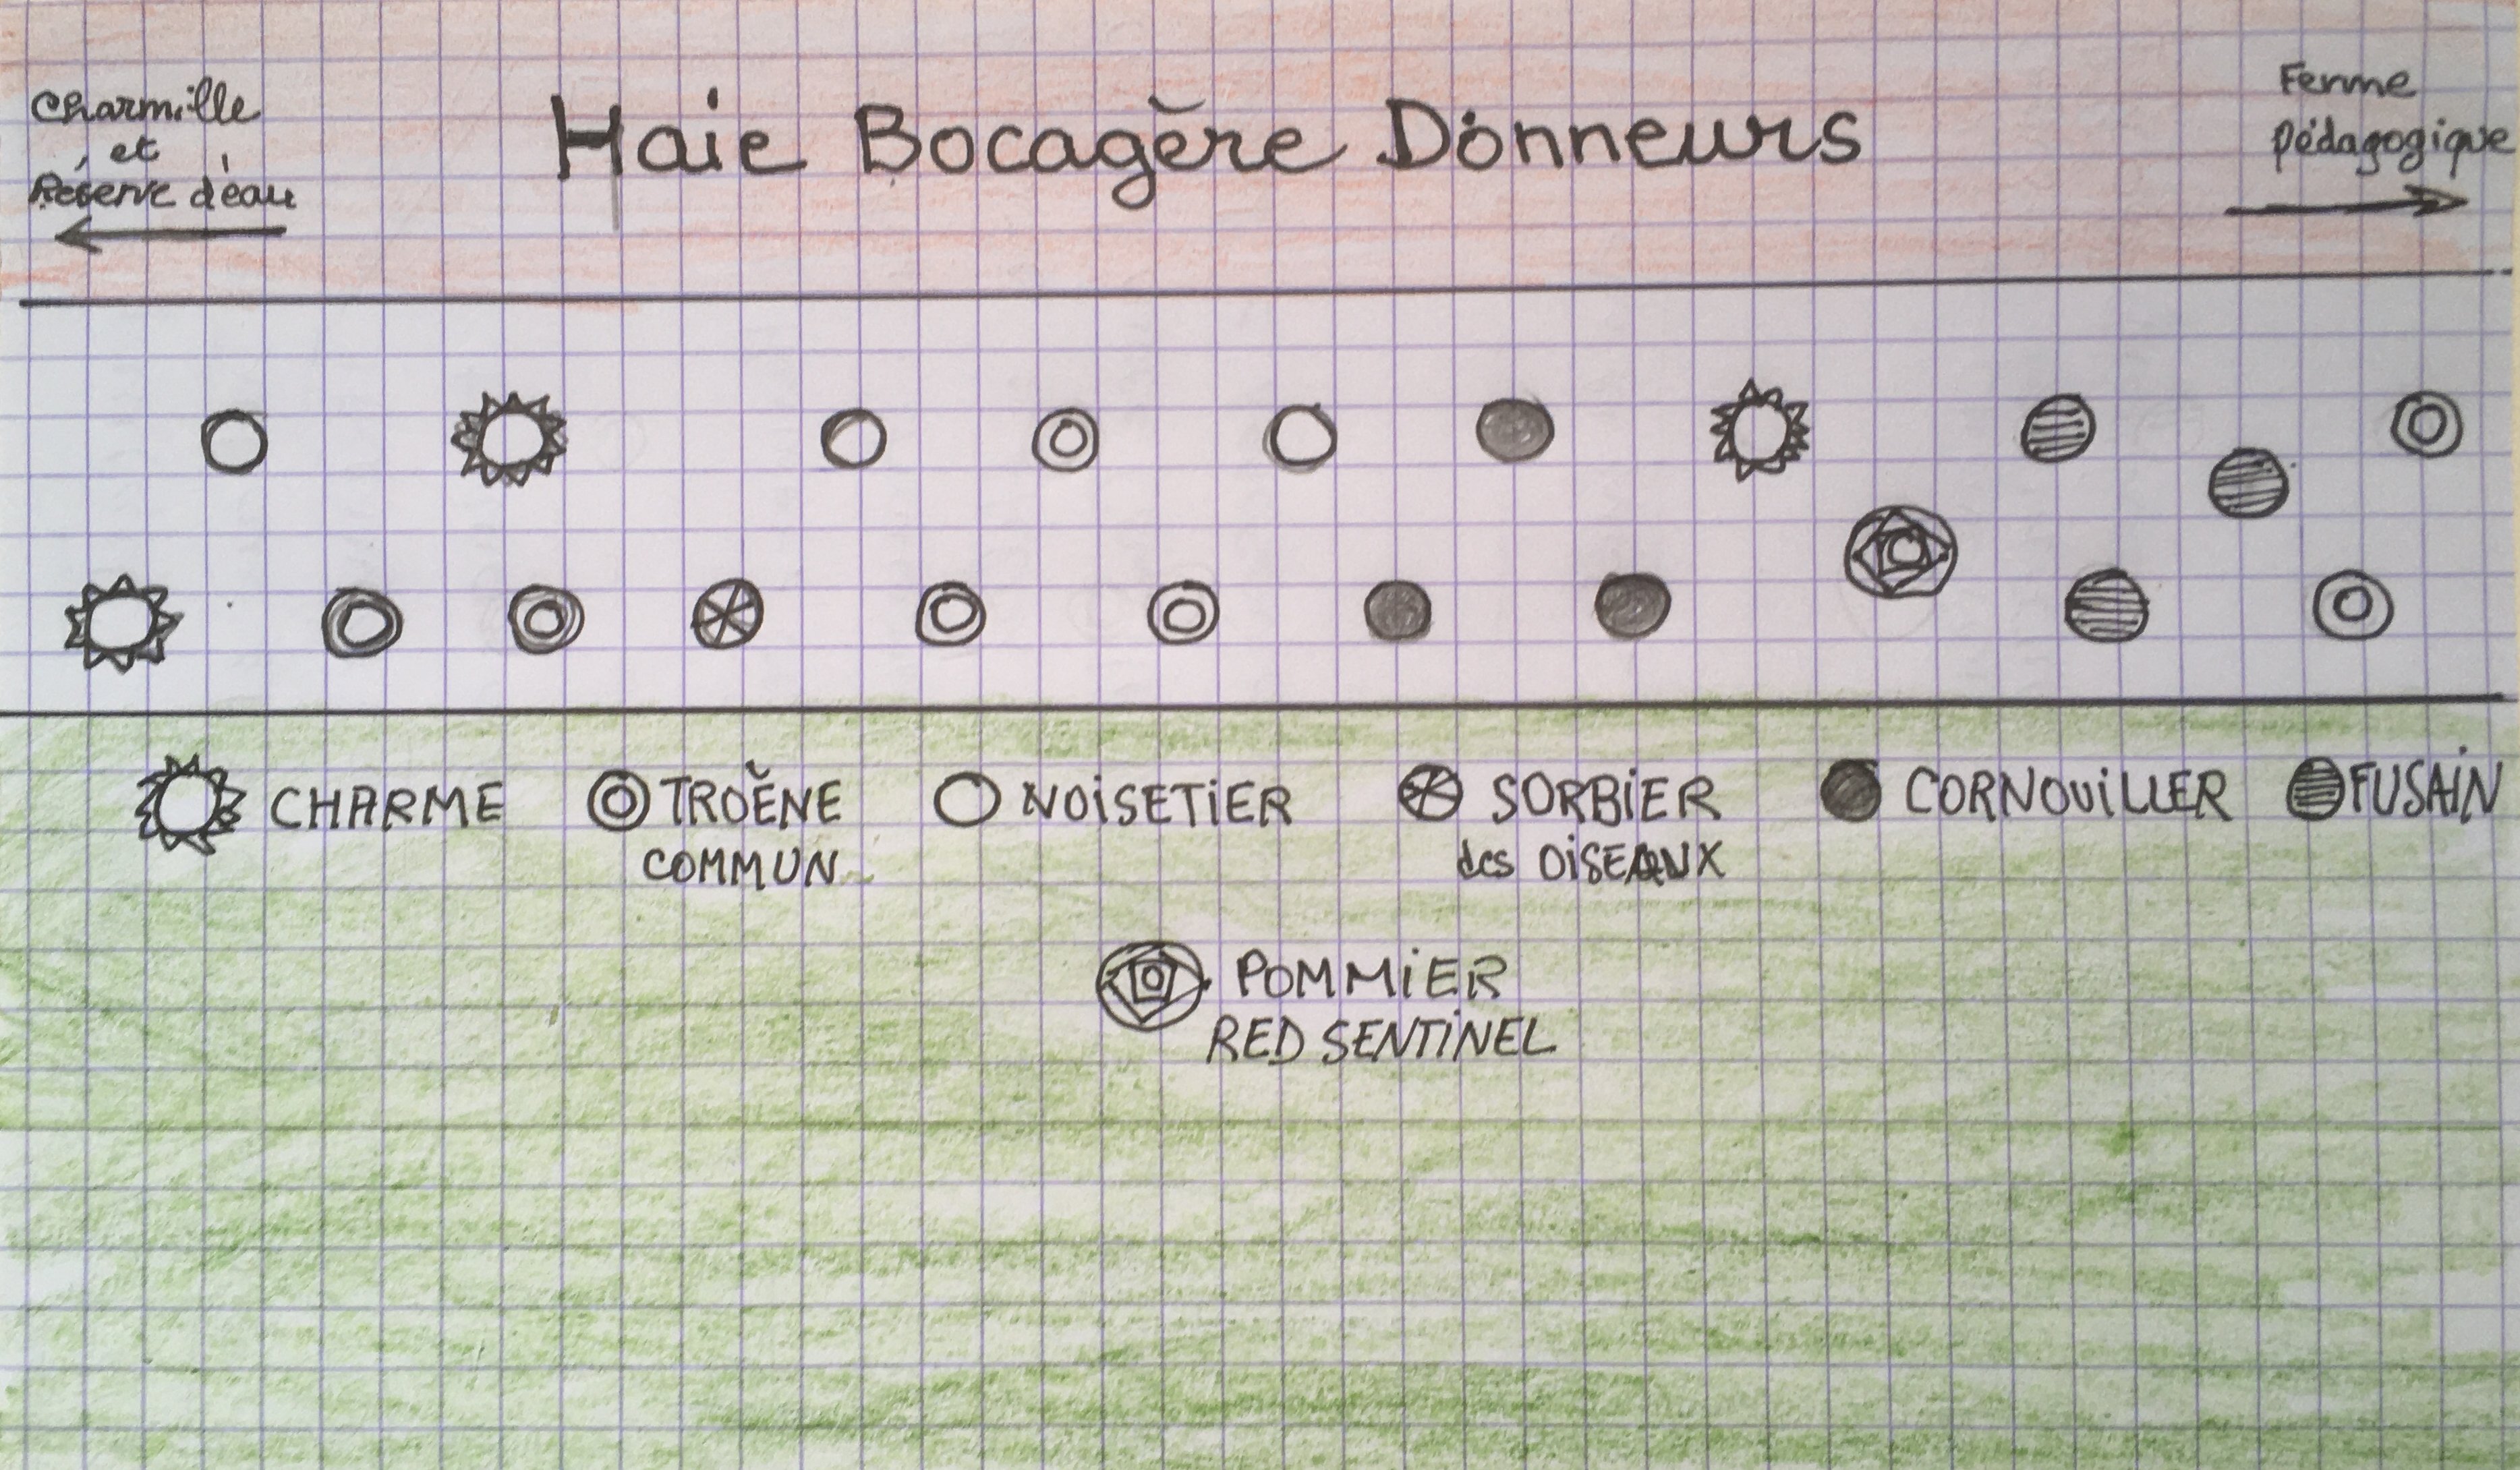 Charmille
et
Réserve d'eau
Haie Bocagère Donneurs
Ferme
pédagogique
CHARME
TROÈNE
COMMUN
NOISETIER
SORBIER
des OISEAUX
CORNOUILLER
FUSAIN
POMMIER
RED SENTINEL